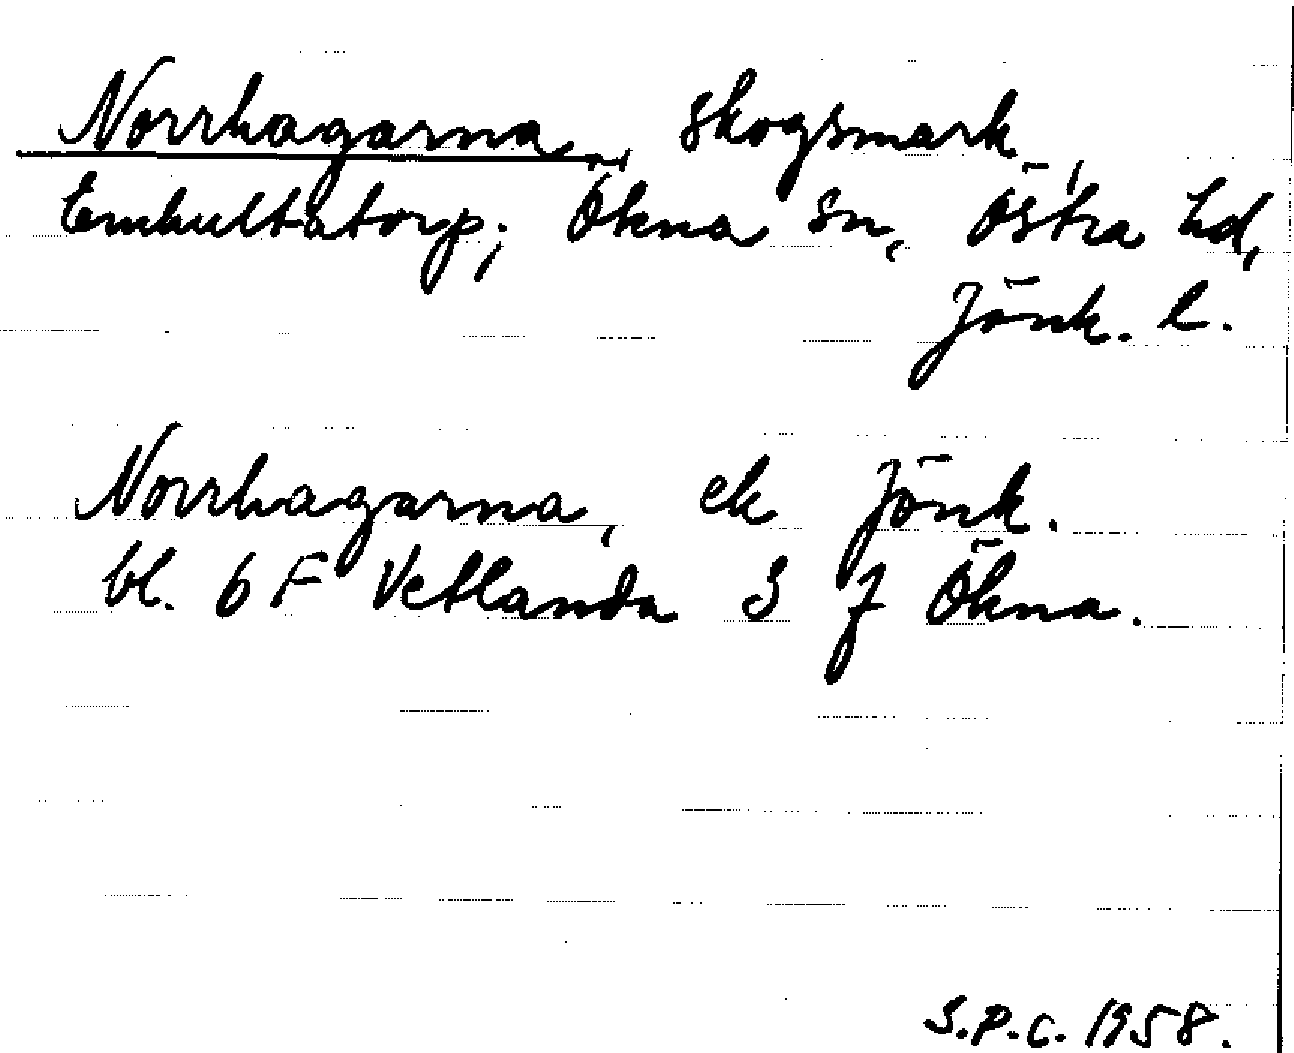 Norrhagarna, skogsmark,
Emhultatorp; Ökna sn, Östra hd,
Jönk. l.
Norrhagarna, ek Jönk.
bl. 6 F Vetlanda S f Ökna.
S.P.C. 1958.